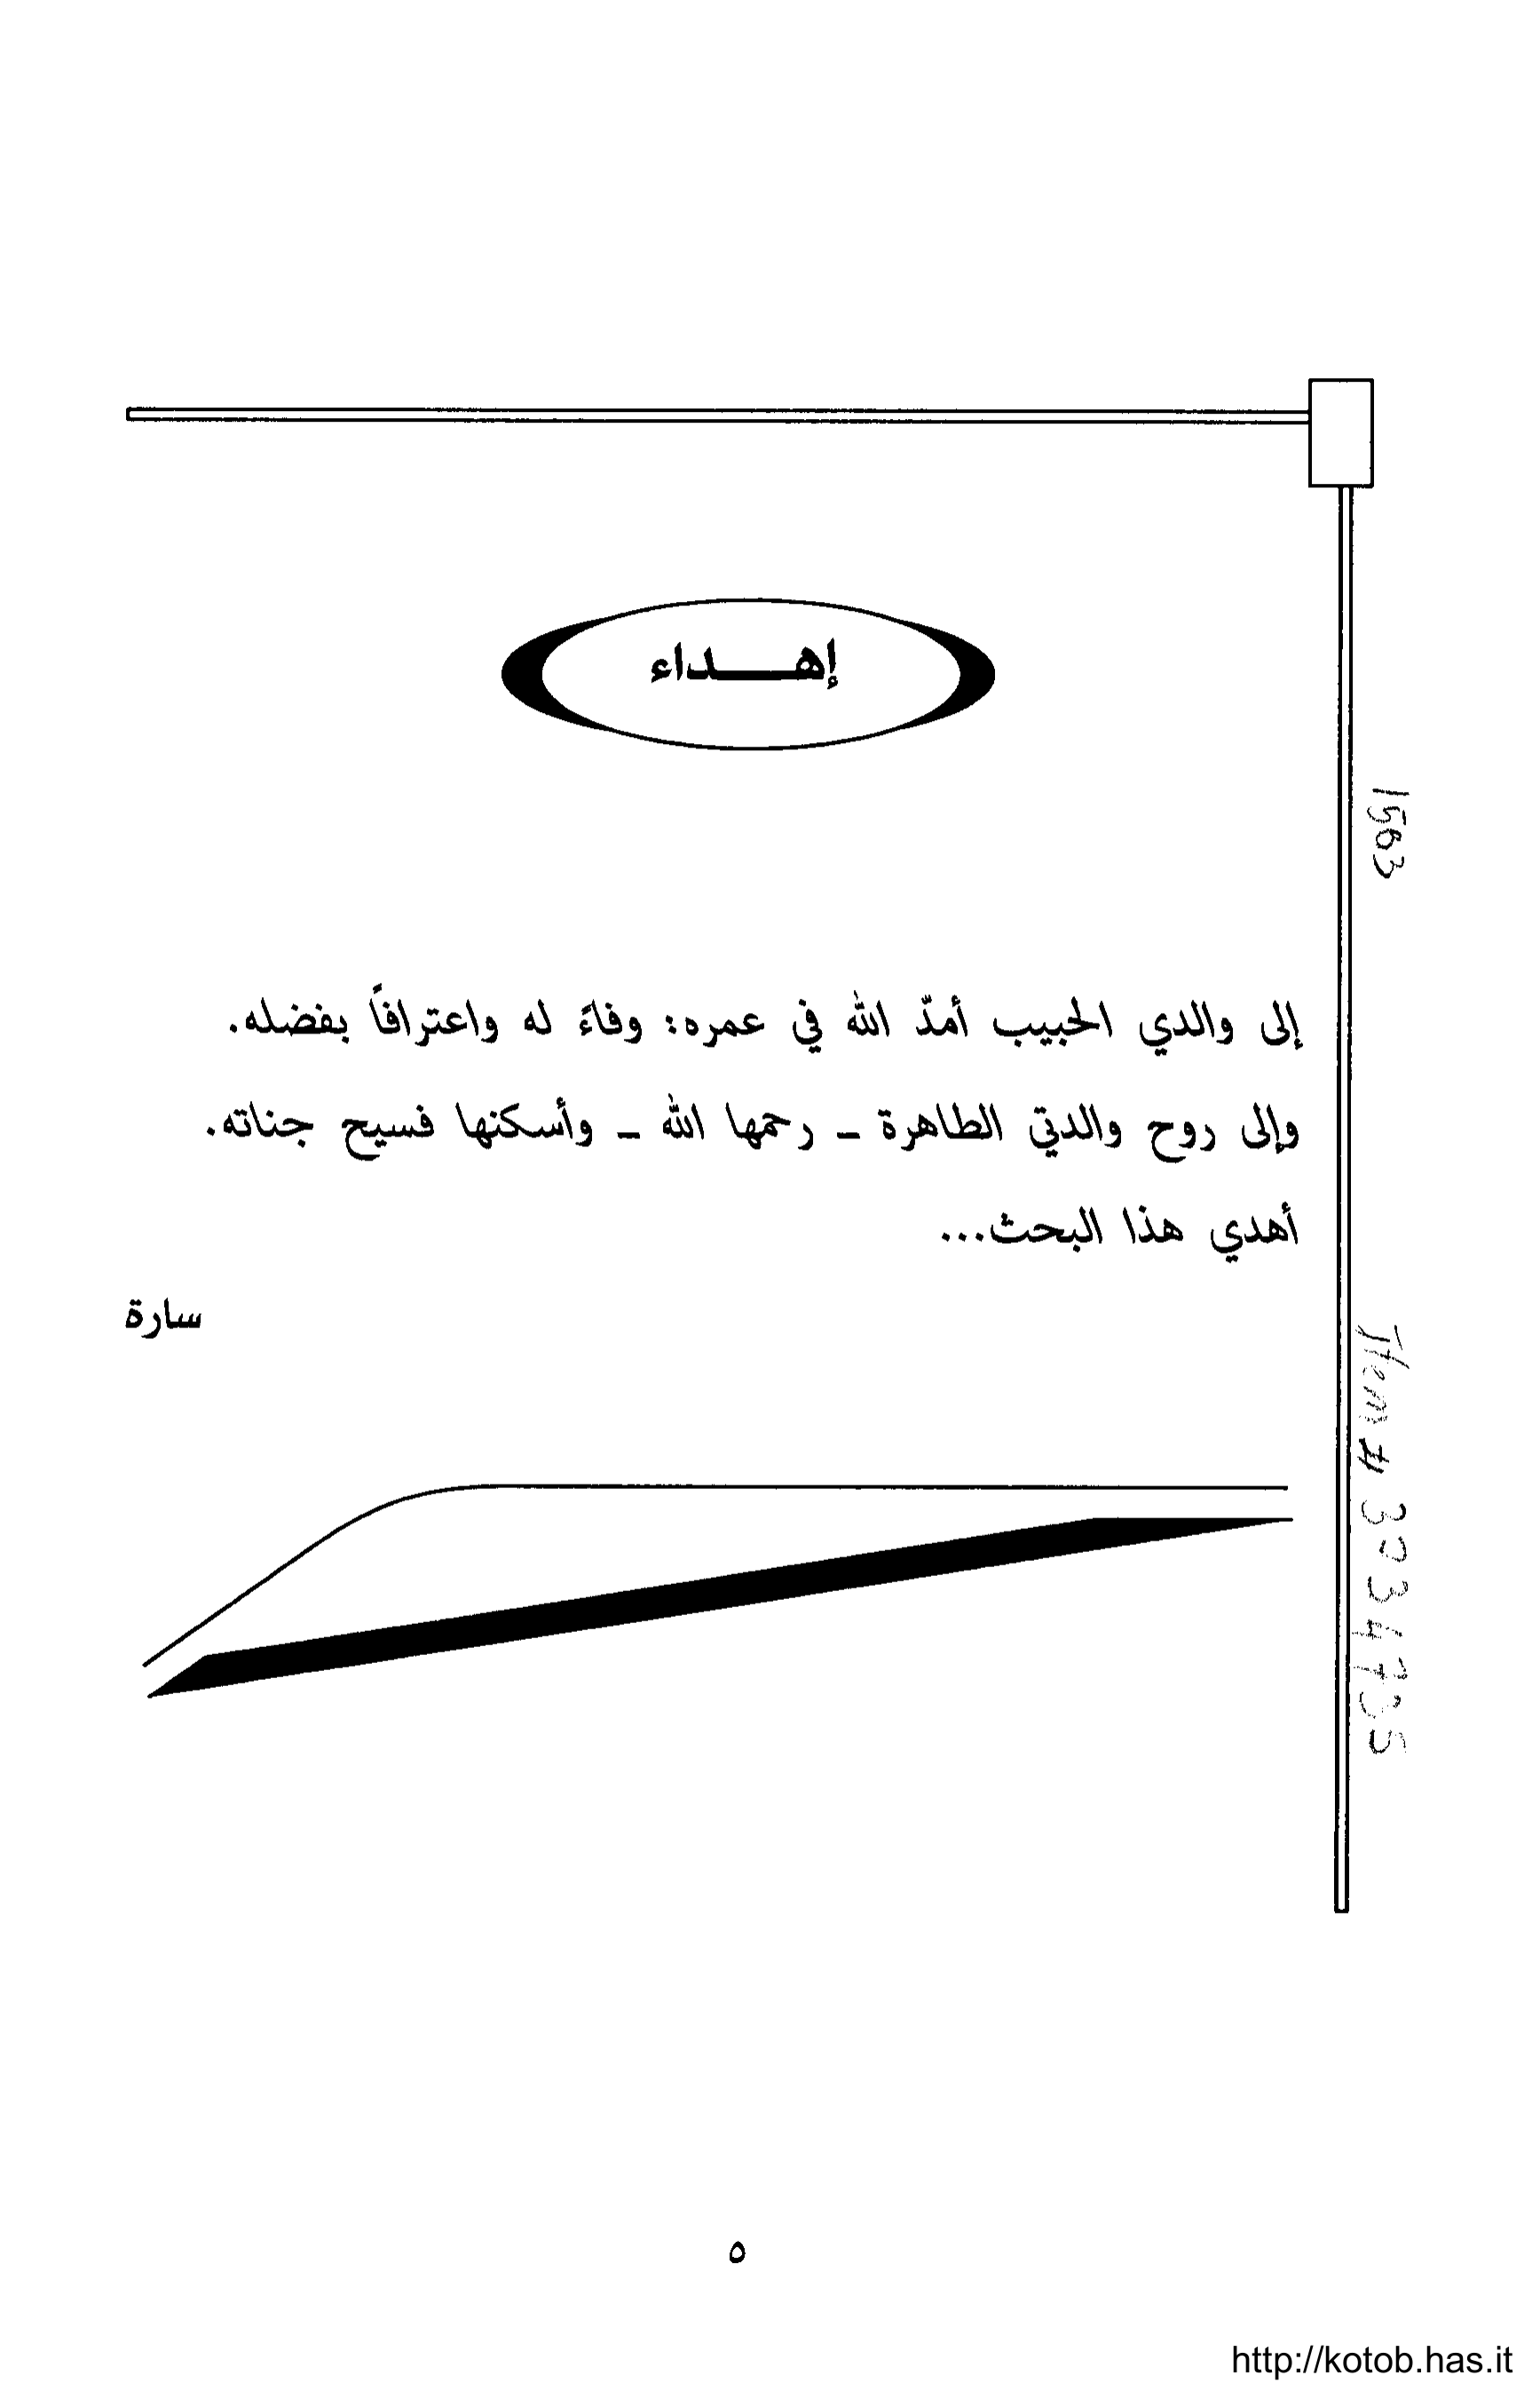 إهــــداء
إلى والدي الحبيب أمدّ الله في عمره: وفاءً له واعترافاً بفضله.
وإلى روح والدتي الطاهرة ـ رحمها الله ـ وأسكنها فسيح جناته.
أهدي هذا البحث...
سارة
1563
Item #
٥
http://kotob.has.it